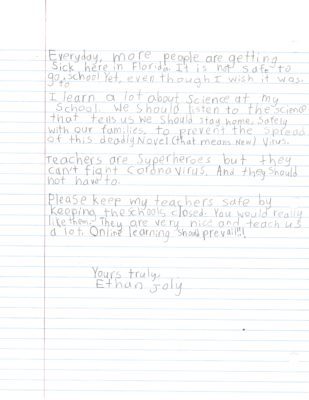 Everyday, more people are getting
sick here in Florida. It is not safe to
go to school yet, even though I wish it was.
I learn a lot about science at my
School. We should listen to the science
that tells us we should stay home, safely
with our families, to prevent the spread
of this deadly Novel (that means New) Virus.
Teachers are Superheroes but they
can't fight Corona Virus. And they should
not have to.
Please keep my teachers safe by
keeping the schools closed. You would really
like them. They are very nice and teach us
a lot. Online learning should prevail!!!
Yours truly,
Ethan Joly